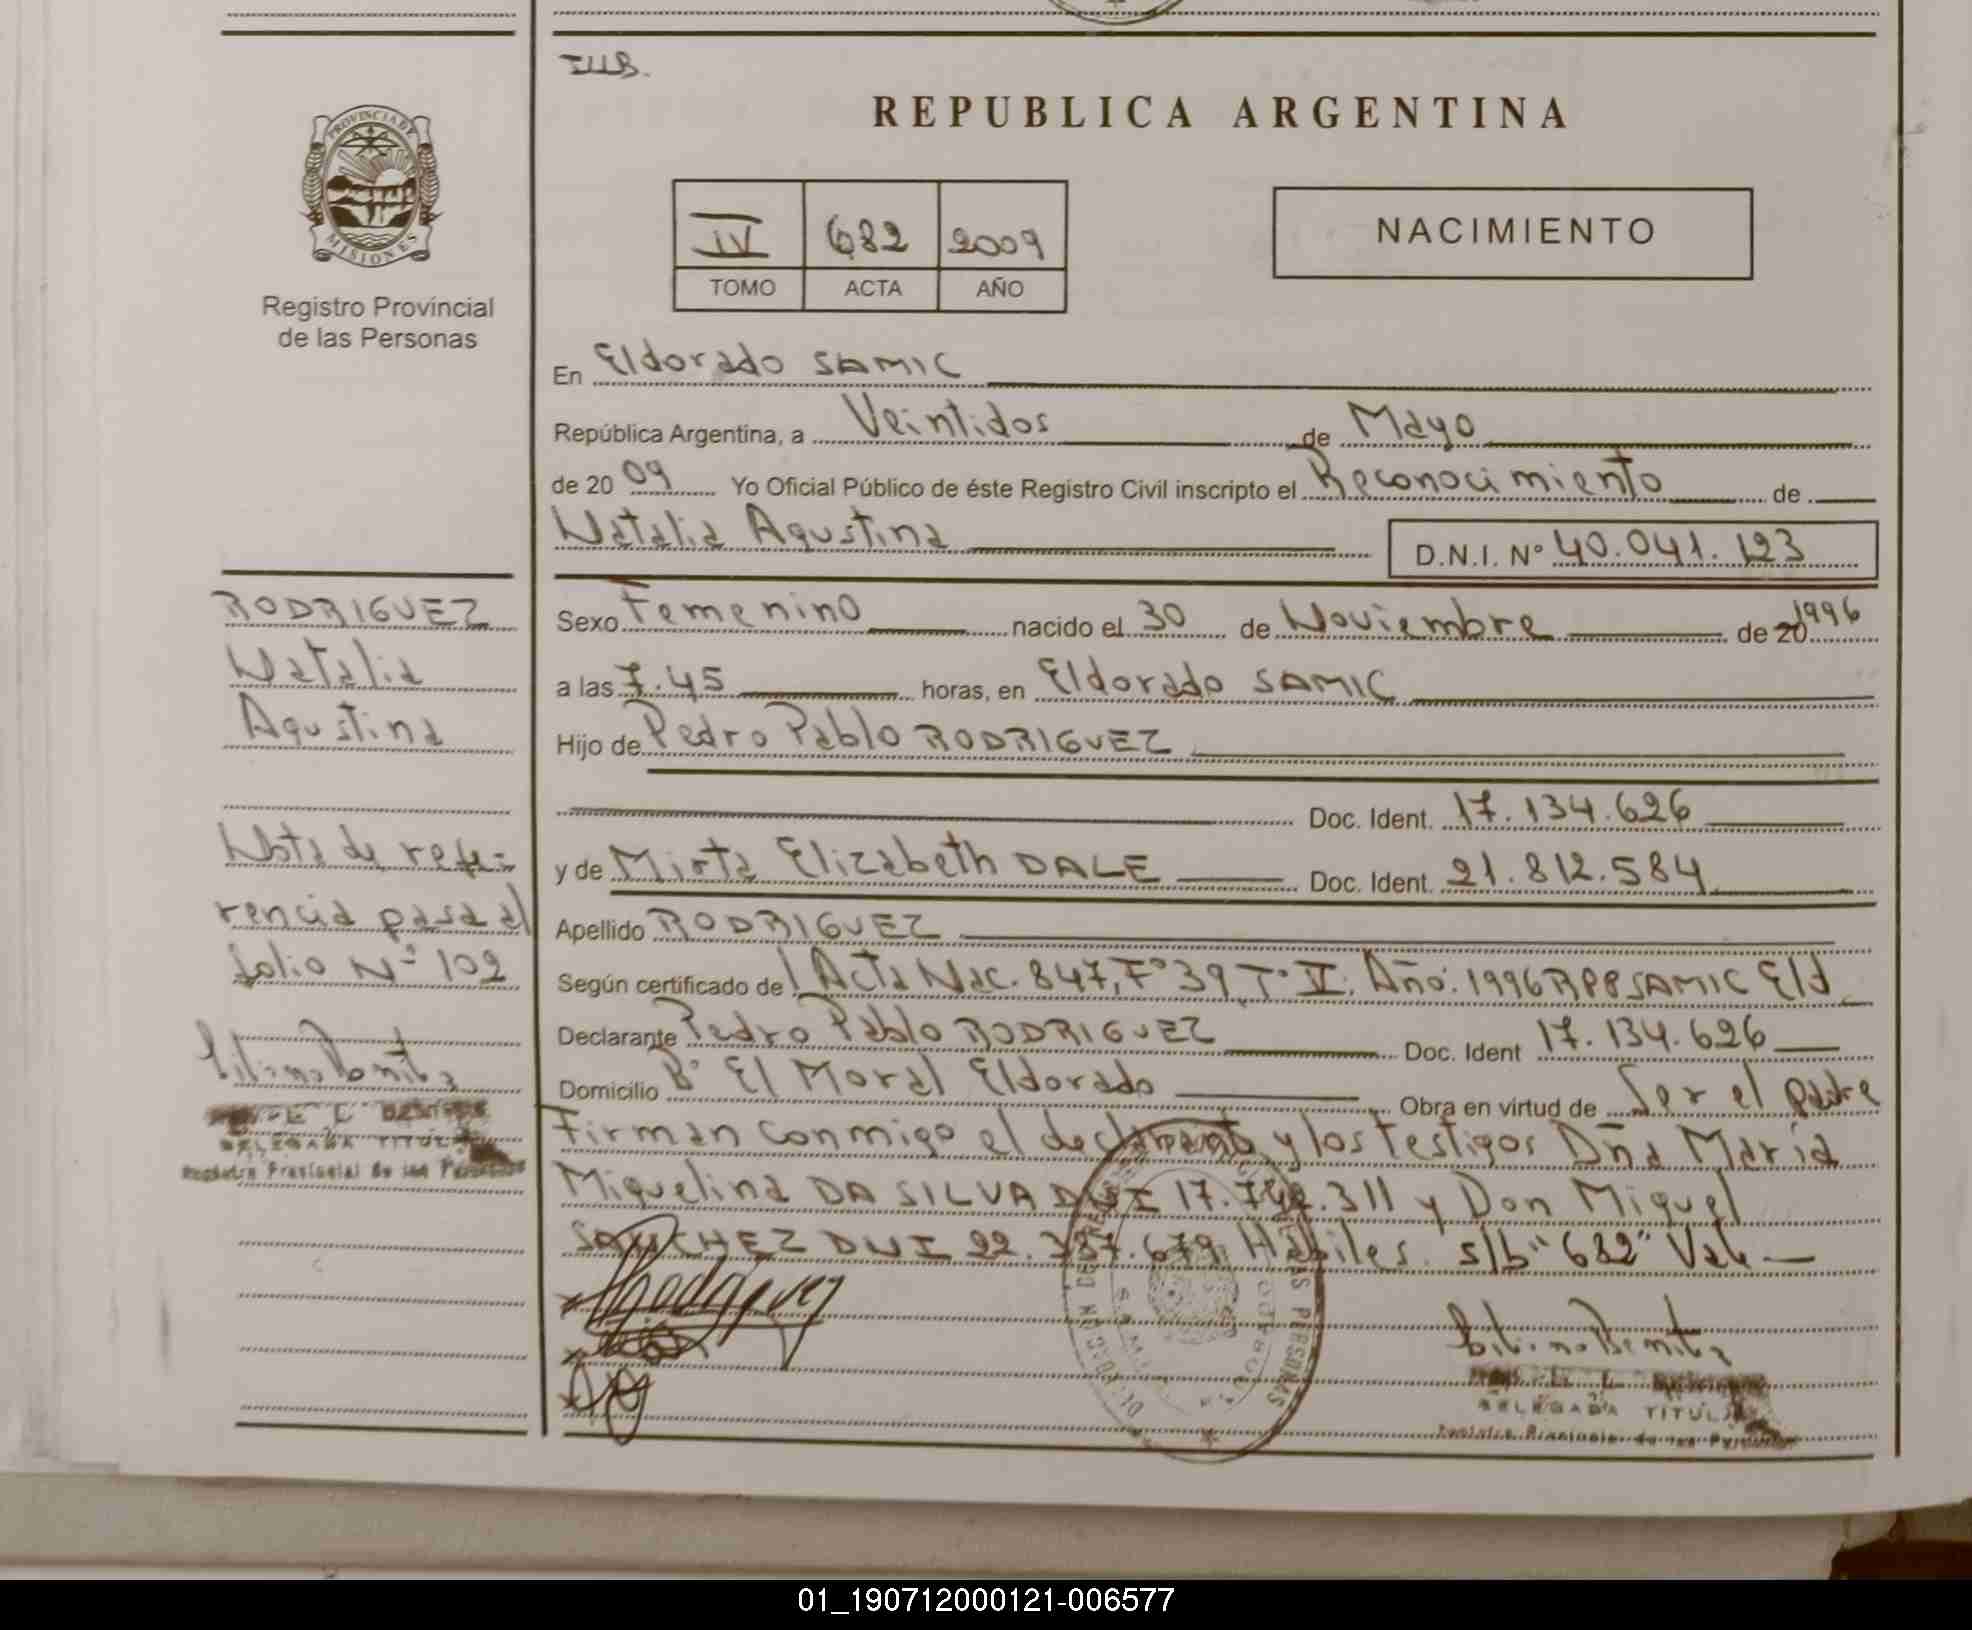 IUB.
PROVINCIA DE
MISIONES
Registro Provincial
de las Personas
REPUBLICA ARGENTINA
IV 682 2009
TOMO ACTA AÑO
NACIMIENTO
En Eldorado SAMIC
República Argentina, a Veintidos de Mayo
de 20 09 Yo Oficial Público de éste Registro Civil inscripto el Reconocimiento de
Natalia Agustina D.N.I. Nº 40.041.123
Sexo Femenino nacido el 30 de Noviembre de 20 1996
a las 7.45 horas, en Eldorado SAMIC
Hijo de Pedro Pablo RODRIGUEZ
Doc. Ident. 17.134.626
y de Mirta Elizabeth DALE Doc. Ident. 21.812.584
Apellido RODRIGUEZ
Según certificado de Acta Nac. 847, Fº 39 Tº II. Año: 1996 RPP SAMIC Eld
Declarante Pedro Pablo RODRIGUEZ Doc. Ident 17.134.626
Domicilio Bº El Moral Eldorado Obra en virtud de Ser el padre
Firman conmigo el declarante y los testigos Dña María
Miguelina DA SILVA DNI 17. .311 y Don Miguel
SANCHEZ DNI 22.337.679 Hábiles. s/b "682" Vale
RODRIGUEZ
Natalia
Agustina
Nota de refe-
rencia pasa al
folio Nº 102
DELEGADA TITULAR
Registro Provincial de las Personas
DELEGADA TITULAR
Registro Provincial de las Personas
01_190712000121-006577